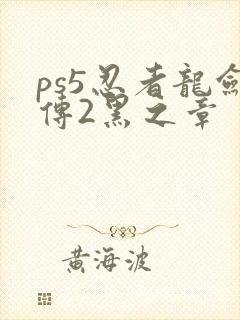 ps5忍者龍劍
傳2黑之章
黃海波